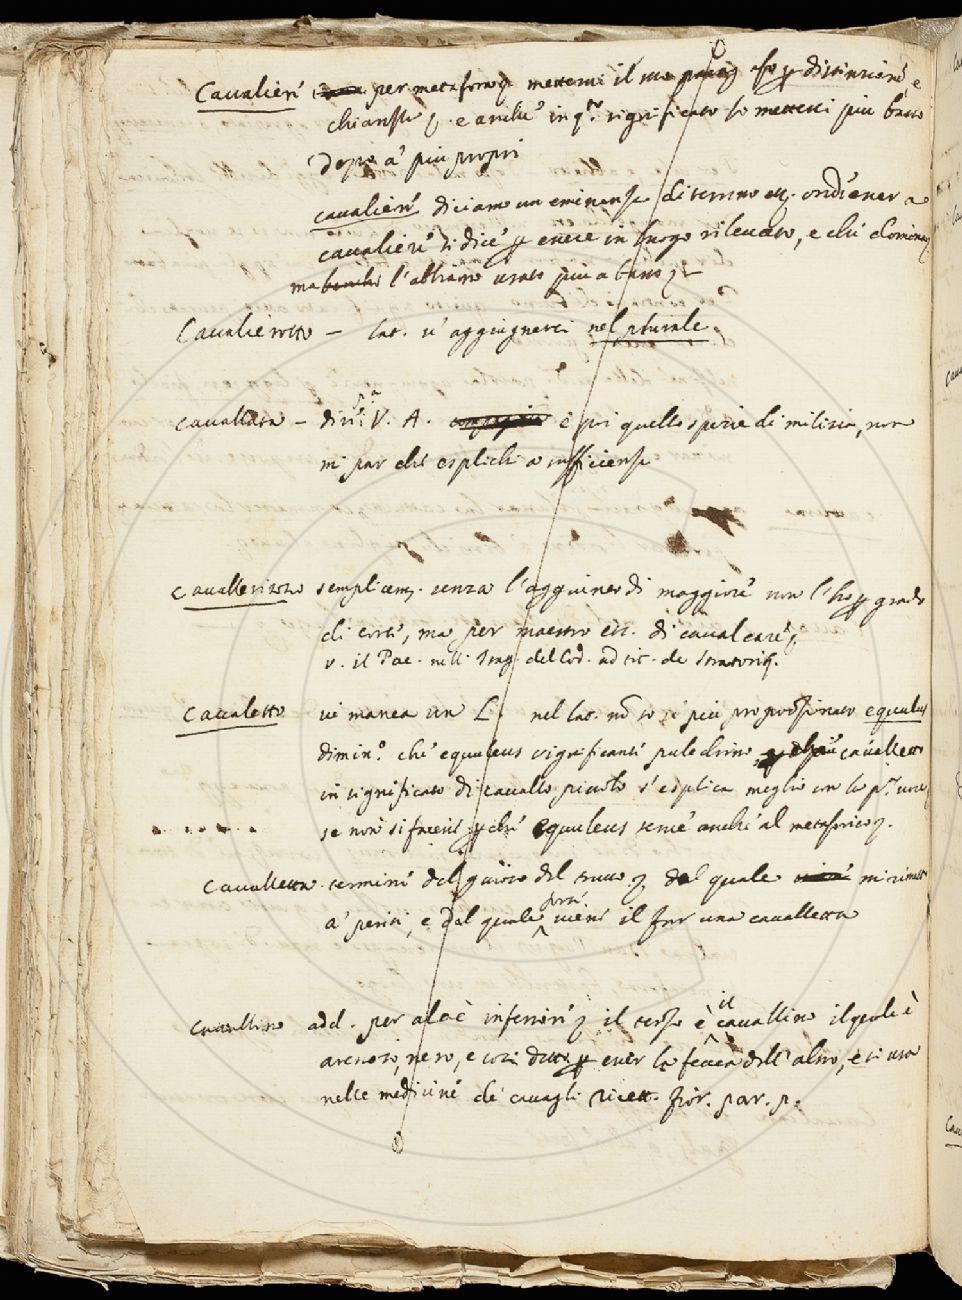 Cavalieri per metafora metterei il distinzione e
e anche in q.to significato lo metterei più basso
dopo a' più propri
cavalieri diciamo un eminenza di terreno etc. ond'esser a
cavaliere si dice essere in luogo rilevato, e che domina
ma l'abbiamo usato più a basso
Cavalierotto – lat. v'aggiugnerei nel plurale
Cavallata – V. A. è poi quella spezie di milizia, non
mi par che esplichi a sufficienza
Cavallerizzo semplicem. senza l'aggiunto di maggiore non l'ho grado
di corte, ma per maestro etc. di cavalcare
v. il Pac. nell' del Cod. ad tit. de
Cavaletto vi manca un L. nel lat. più proporzionato equulus
dimin.o che equuleus significante puledrino cavalletto
in significato di cavallo piccolo s'esplica meglio con la p.a voce
se non si facesse equuleus serve anche al metaforico.
Cavalletta termine del giuoco del del quale mi rimetto
a' periti, e dal quale forse viene il far una cavalletta
Cavallino add. per aloè inferiore il terzo è il cavallino il quale è
arenoso, nero, e così detto esser la feccia dell' altro, e si usa
nelle medicine de' cavagli Ricett. Fior. par. p.